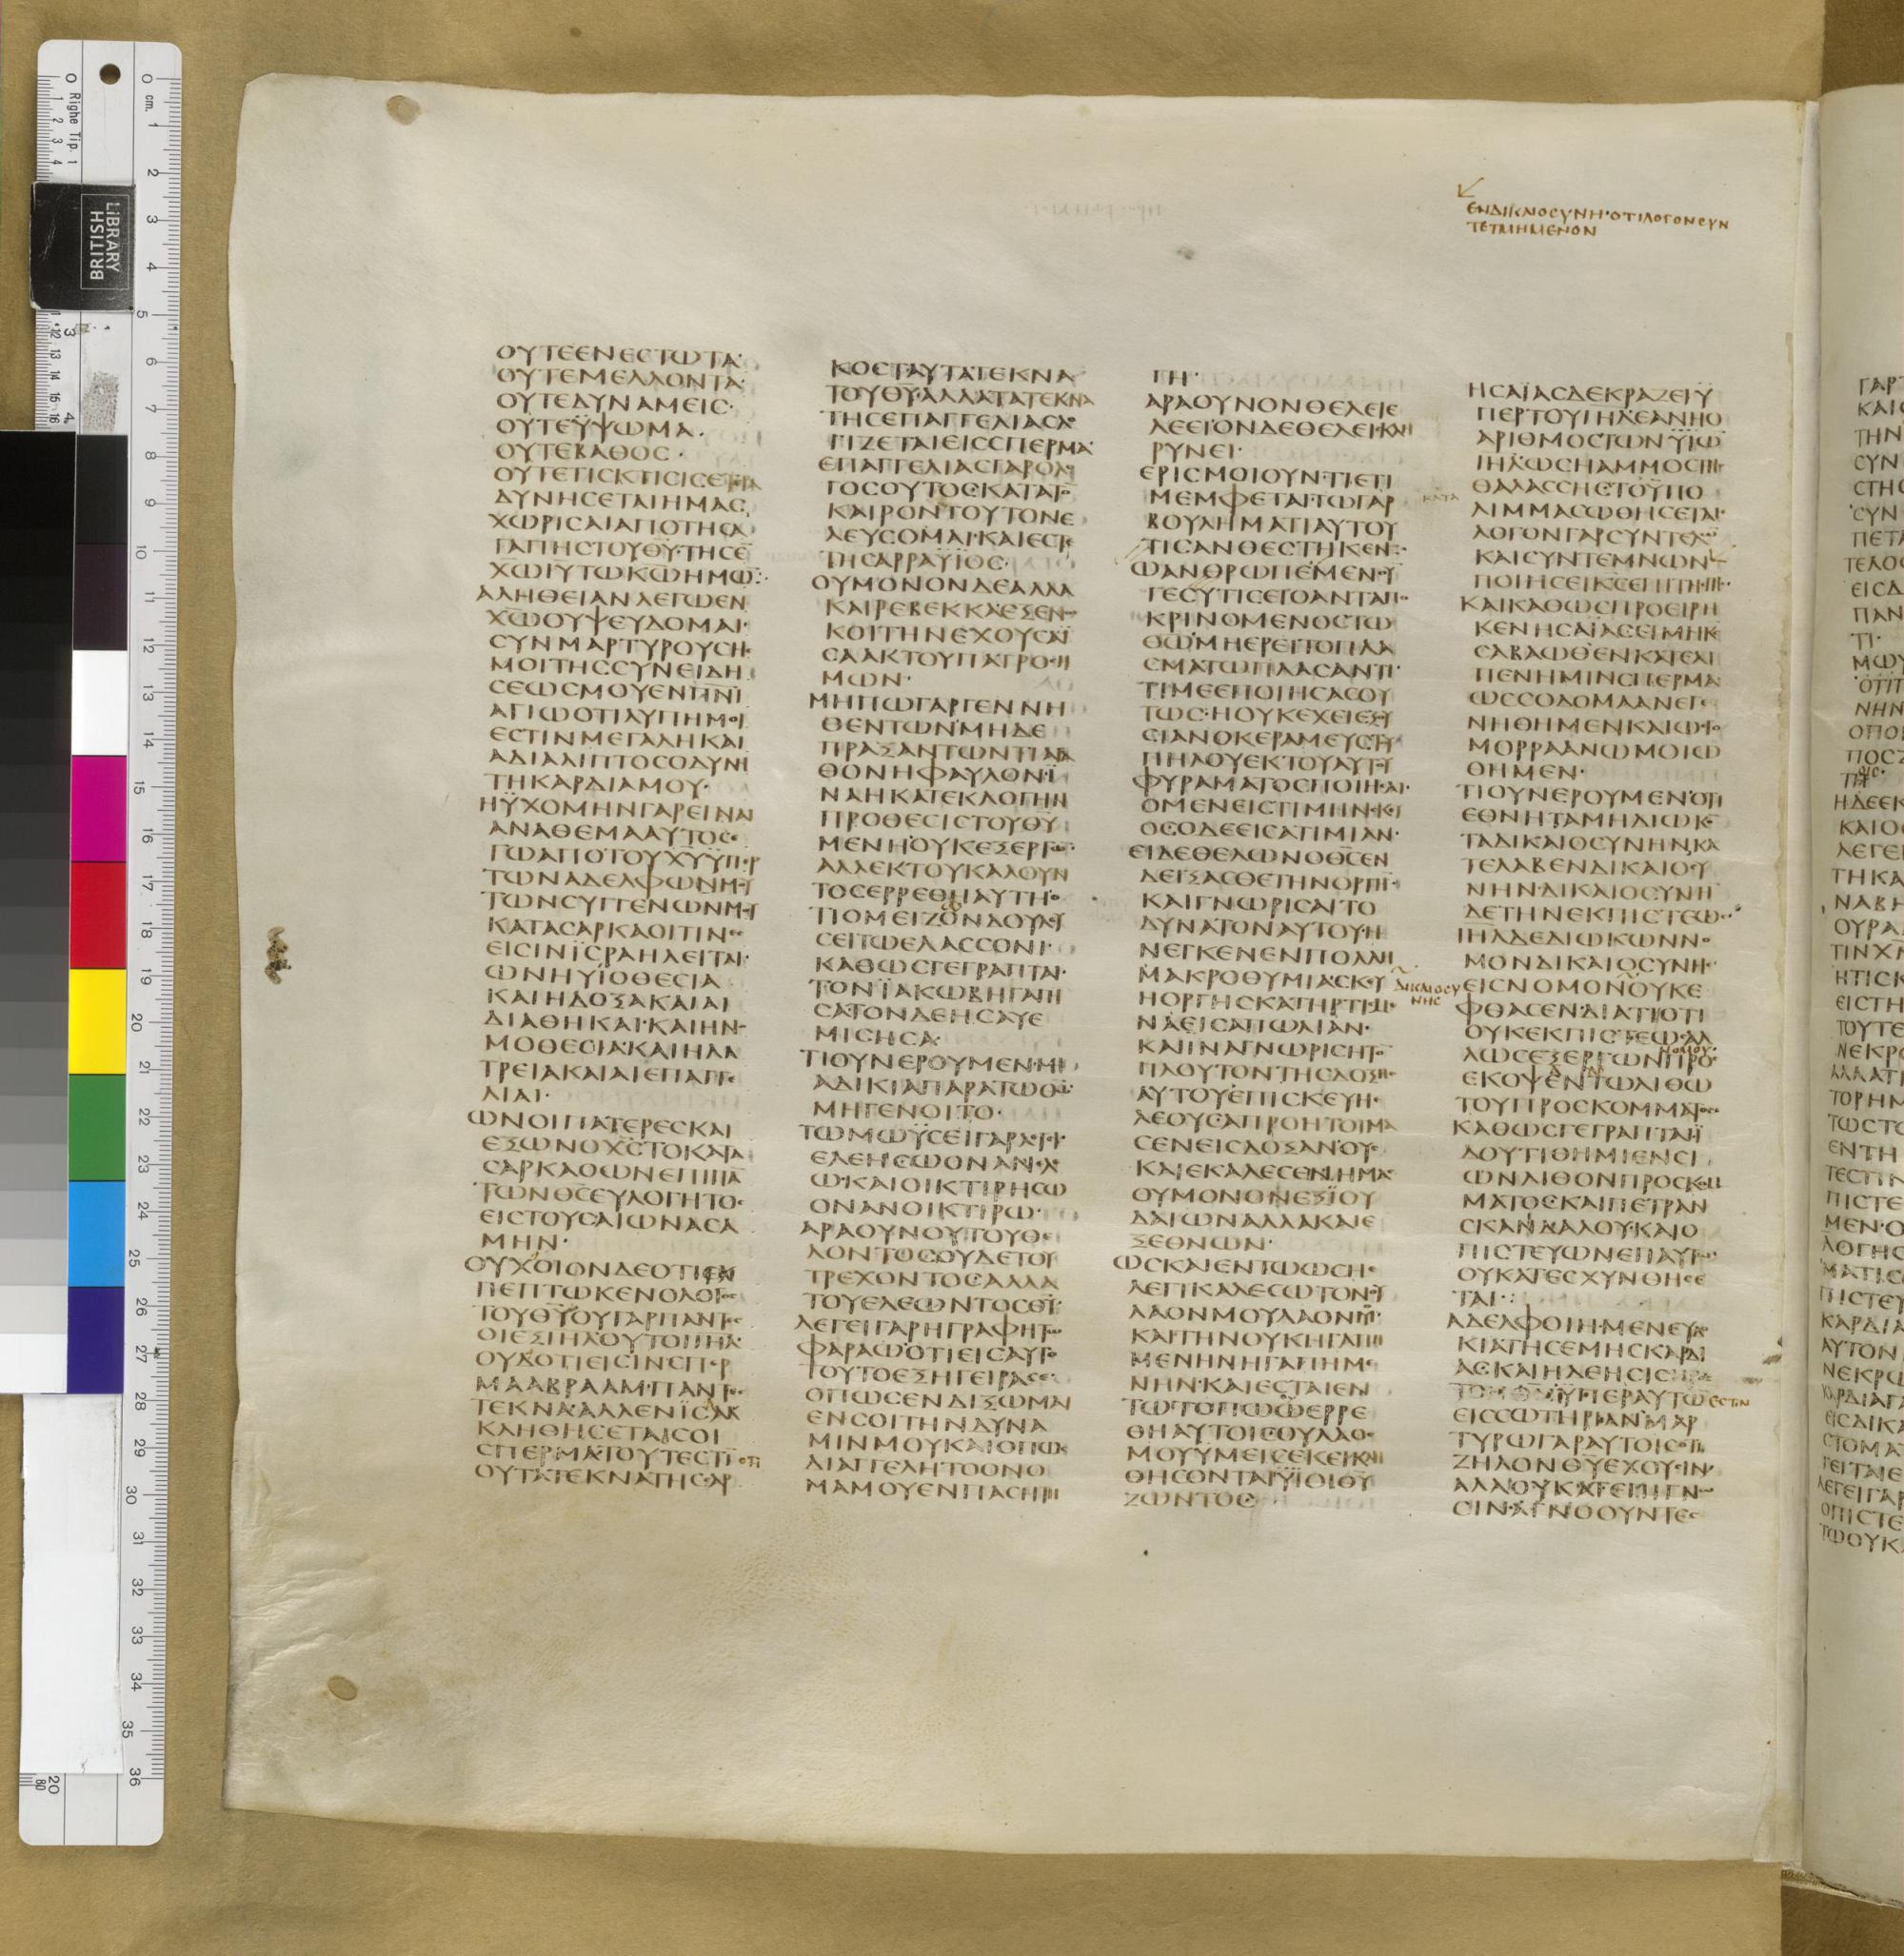 BRITISH
LIBRARY
ΕΝΔΙΚΑΙΟϹΥΝΗ·ΟΤΙΛΟΓΟΝϹΥΝ
ΤΕΤΜΗΜΕΝΟΝ
ΟΥΤΕΕΝΕϹΤΩΤΑ·
ΟΥΤΕΜΕΛΛΟΝΤΑ·
ΟΥΤΕΔΥΝΑΜΕΙϹ·
ΟΥΤΕΫΨΩΜΑ·
ΟΥΤΕΒΑΘΟϹ·
ΟΥΤΕΤΙϹΚΤΙϹΙϹΕΤΕΡΑ
ΔΥΝΗϹΕΤΑΙΗΜΑϹ
ΧΩΡΙϹΑΙΑΠΟΤΗϹΑ
ΓΑΠΗϹΤΟΥΘΥ·ΤΗϹΕ̅
ΧΩΙΥΤΩΚΩΗΜΩ̅·
ΑΛΗΘΕΙΑΝΛΕΓΩΕΝ
ΧΩΟΥΨΕΥΔΟΜΑΙ·
ϹΥΝΜΑΡΤΥΡΟΥϹΗϹ
ΜΟΙΤΗϹϹΥΝΕΙΔΗ
ϹΕΩϹΜΟΥΕΝΠΝΙ
ΑΓΙΩΟΤΙΛΥΠΗΜΟΙ
ΕϹΤΙΝΜΕΓΑΛΗΚΑΙ
ΑΔΙΑΛΙΠΤΟϹΟΔΥΝΗ
ΤΗΚΑΡΔΙΑΜΟΥ·
ΗΫΧΟΜΗΝΓΑΡΕΙΝΑΙ
ΑΝΑΘΕΜΑΑΥΤΟϹΕ
ΓΩΑΠΟΤΟΥΧΥΫΠΕΡ
ΤΩΝΑΔΕΛΦΩΝΜΟΥ
ΤΩΝϹΥΓΓΕΝΩΝΜΟΥ
ΚΑΤΑϹΑΡΚΑΟΙΤΙΝΕϹ
ΕΙϹΙΝΪϹΡΑΗΛΕΙΤΑΙ·
ΩΝΗΥΪΟΘΕϹΙΑ
ΚΑΙΗΔΟΞΑΚΑΙΑΙ
ΔΙΑΘΗΚΑΙ·ΚΑΙΗΝΟ
ΜΟΘΕϹΙΑ·ΚΑΙΗΛΑ
ΤΡΕΙΑΚΑΙΑΙΕΠΑΓΓΕ
ΛΙΑΙ·
ΩΝΟΙΠΑΤΕΡΕϹΚΑΙ
ΕΞΩΝΟΧϹΤΟΚΑΤΑ
ϹΑΡΚΑΟΩΝΕΠΙΠΑ̅
ΤΩΝΘϹΕΥΛΟΓΗΤΟϹ
ΕΙϹΤΟΥϹΑΙΩΝΑϹΑ
ΜΗΝ·
ΟΥΧΟΙΟΝΔΕΟΤΙΕΚ
ΠΕΠΤΩΚΕΝΟΛΟΓΟϹ
ΤΟΥΘΥΟΥΓΑΡΠΑΝΤΕϹ
ΟΙΕΞΙΗΛΟΥΤΟΙΙΗΛ·
ΟΥΧΟΤΙΕΙϹΙΝϹΠΕΡ
ΜΑΑΒΡΑΑΜ·ΠΑΝΤΕϹ
ΤΕΚΝΑ·ΑΛΛΕΝΪϹΑΚ
ΚΛΗΘΗϹΕΤΑΙϹΟΙ
ϹΠΕΡΜΑ·ΤΟΥΤΕϹΤΙ̅ ΟΤΙ
ΟΥΤΑΤΕΚΝΑΤΗϹϹΑΡ
ΚΟϹΤΑΥΤΑΤΕΚΝΑ
ΤΟΥΘΥ·ΑΛΛΑΤΑΤΕΚΝΑ
ΤΗϹΕΠΑΓΓΕΛΙΑϹΛΟ
ΓΙΖΕΤΑΙΕΙϹϹΠΕΡΜΑ·
ΕΠΑΓΓΕΛΙΑϹΓΑΡΟΛΟ
ΓΟϹΟΥΤΟϹ·ΚΑΤΑΤΟ̅
ΚΑΙΡΟΝΤΟΥΤΟΝΕ
ΛΕΥϹΟΜΑΙ·ΚΑΙΕϹΤΕ
ΤΗϹΑΡΡΑΫΙΟϹ·
ΟΥΜΟΝΟΝΔΕΑΛΛΑ
ΚΑΙΡΕΒΕΚΚΑΕΞΕΝΟϹ
ΚΟΙΤΗΝΕΧΟΥϹΑΪ
ϹΑΑΚΤΟΥΠΑΤΡΟϹΗ
ΜΩΝ·
ΜΗΠΩΓΑΡΓΕΝΝΗ
ΘΕΝΤΩΝΜΗΔΕ
ΠΡΑΞΑΝΤΩΝΤΙΑΓΑ
ΘΟΝΗΦΑΥΛΟΝ·Ϊ
ΝΑΗΚΑΤΕΚΛΟΓΗΝ
ΠΡΟΘΕϹΙϹΤΟΥΘΥ
ΜΕΝΗΟΥΚΕΞΕΡΓΩ̅·
ΑΛΛΕΚΤΟΥΚΑΛΟΥΝ
ΤΟϹΕΡΡΕΘΗΑΥΤΗΟ
ΤΙΟΜΕΙΖΟΝΔΟΥΛΕΥ
ϹΕΙΤΩΕΛΑϹϹΟΝΙ·
ΚΑΘΩϹΓΕΓΡΑΠΤΑΙ·
ΤΟΝΪΑΚΩΒΗΓΑΠΗ
ϹΑΤΟΝΔΕΗϹΑΥΕ
ΜΙϹΗϹΑ·
ΤΙΟΥΝΕΡΟΥΜΕΝ·ΜΗ
ΑΔΙΚΙΑΠΑΡΑΤΩΘΩ·
ΜΗΓΕΝΟΙΤΟ·
ΤΩΜΩΫϹΕΙΓΑΡΛΕΓΕΙ·
ΕΛΕΗϹΩΟΝΑΝΕΛΕ
Ω·ΚΑΙΟΙΚΤΙΡΗϹΩ
ΟΝΑΝΟΙΚΤΙΡΩ·
ΑΡΑΟΥΝΟΥΤΟΥΘΕ
ΛΟΝΤΟϹΟΥΔΕΤΟΥ
ΤΡΕΧΟΝΤΟϹΑΛΛΑ
ΤΟΥΕΛΕΩΝΤΟϹΘΥ·
ΛΕΓΕΙΓΑΡΗΓΡΑΦΗΤΩ
ΦΑΡΑΩΟΤΙΕΙϹΑΥΤΟ
ΤΟΥΤΟΕΞΗΓΕΙΡΑϹΕ·
ΟΠΩϹΕΝΔΙΞΩΜΑΙ
ΕΝϹΟΙΤΗΝΔΥΝΑ
ΜΙΝΜΟΥΚΑΙΟΠΩϹ
ΔΙΑΓΓΕΛΗΤΟΟΝΟ
ΜΑΜΟΥΕΝΠΑϹΗΤΗ
ΓΗ·
ΑΡΑΟΥΝΟΝΘΕΛΕΙΕ
ΛΕΕΙ·ΟΝΔΕΘΕΛΕΙϹΚΛΗ
ΡΥΝΕΙ·
ΕΡΙϹΜΟΙΟΥΝ·ΤΙΕΤΙ
ΜΕΜΦΕΤΑΙ·ΤΩΓΑΡ
ΒΟΥΛΗΜΑΤΙΑΥΤΟΥ
ΤΙϹΑΝΘΕϹΤΗΚΕΝ·
ΩΑΝΘΡΩΠΕΜΕΝΟΥ̅
ΓΕϹΥΤΙϹΕΙΟΑΝΤΑΠΟ
ΚΡΙΝΟΜΕΝΟϹΤΩ
ΘΩ·ΜΗΕΡΕΙΤΟΠΛΑ
ϹΜΑΤΩΠΛΑϹΑΝΤΙ·
ΤΙΜΕΕΠΟΙΗϹΑϹΟΥ
ΤΩϹ·ΗΟΥΚΕΧΕΙΕΞΟΥ
ϹΙΑΝΟΚΕΡΑΜΕΥϹΤΟΥ
ΠΗΛΟΥΕΚΤΟΥΑΥΤΟΥ
ΦΥΡΑΜΑΤΟϹΠΟΙΗϹΑΙ·
ΟΜΕΝΕΙϹΤΙΜΗΝϹΚΕΥ
ΟϹΟΔΕΕΙϹΑΤΙΜΙΑΝ·
ΕΙΔΕΘΕΛΩΝΟΘϹΕΝ
ΔΕΙΞΑϹΘΕΤΗΝΟΡΓΗ̅·
ΚΑΙΓΝΩΡΙϹΑΙΤΟ
ΔΥΝΑΤΟΝΑΥΤΟΥ·Η
ΝΕΓΚΕΝΕΝΠΟΛΛΗ
ΜΑΚΡΟΘΥΜΙΑϹΚΕΥ
ΗΟΡΓΗϹΚΑΤΗΡΤΙϹΜΕ
ΝΑΕΙϹΑΠΩΛΙΑΝ·
ΚΑΙΙΝΑΓΝΩΡΙϹΗΤΟ̅
ΠΛΟΥΤΟΝΤΗϹΔΟΞΗϹ
ΑΥΤΟΥΕΠΙϹΚΕΥΗ
ΛΕΟΥϹΑΠΡΟΗΤΟΙΜΑ
ϹΕΝΕΙϹΔΟΞΑΝΟΥϹ
ΚΑΙΕΚΑΛΕϹΕΝΗΜΑϹ
ΟΥΜΟΝΟΝΕΞΪΟΥ
ΔΑΙΩΝΑΛΛΑΚΑΙΕ
ΞΕΘΝΩΝ·
ΩϹΚΑΙΕΝΤΩΩϹΗΕ
ΛΕΓΙΚΑΛΕϹΩΤΟΝΟΥ
ΛΑΟΝΜΟΥΛΑΟΝΜΟΥ·
ΚΑΙΤΗΝΟΥΚΗΓΑΠΗ
ΜΕΝΗΝΗΓΑΠΗΜΕ
ΝΗΝ·ΚΑΙΕϹΤΑΙΕΝ
ΤΩΤΟΠΩΩΕΡΡΕ
ΘΗΑΥΤΟΙϹΟΥΛΑΟϹ
ΜΟΥΫΜΕΙϹΕΚΕΙΚΛΗ
ΘΗϹΟΝΤΑΙΫΪΟΙΘΥ
ΖΩΝΤΟϹ
ΚΑΤΑ
ΔΙΚΑΙΟϹΥ
ΝΗϹ
ΗϹΑΪΑϹΔΕΚΡΑΖΕΙΫ
ΠΕΡΤΟΥΙΗΛΕΑΝΗΟ
ΑΡΙΘΜΟϹΤΩΝΫΙΩ̅
ΙΗΛΩϹΗΑΜΜΟϹΤΗϹ
ΘΑΛΑϹϹΗϹΤΟΫΠΟ
ΛΙΜΜΑϹΩΘΗϹΕΤΑΙ·
ΛΟΓΟΝΓΑΡϹΥΝΤΕΛΩ̅
ΚΑΙϹΥΝΤΕΜΝΩΝ
ΠΟΙΗϹΕΙΚϹΕΠΙΤΗϹΓΗϹ·
ΚΑΙΚΑΘΩϹΠΡΟΕΙΡΗ
ΚΕΝΗϹΑΪΑϹΕΙΜΗΚϹ
ϹΑΒΑΩΘΕΝΚΑΤΕΛΙ
ΠΕΝΗΜΙΝϹΠΕΡΜΑ
ΩϹϹΟΔΟΜΑΑΝΕΓΕ
ΝΗΘΗΜΕΝΚΑΙΩϹΓΟ
ΜΟΡΡΑΑΝΩΜΟΙΩ
ΘΗΜΕΝ·
ΤΙΟΥΝΕΡΟΥΜΕΝ·ΟΤΙ
ΕΘΝΗΤΑΜΗΔΙΩΚΟ̅
ΤΑΔΙΚΑΙΟϹΥΝΗΝΚΑ
ΤΕΛΑΒΕΝΔΙΚΑΙΟϹΥ
ΝΗΝ·ΔΙΚΑΙΟϹΥΝΗ̅
ΔΕΤΗΝΕΚΠΙϹΤΕΩϹ·
ΙΗΛΔΕΔΙΩΚΩΝΝΟ
ΜΟΝΔΙΚΑΙΟϹΥΝΗϹ
ΕΙϹΝΟΜΟΝΟΥΚΕ
ΦΘΑϹΕΝ·ΔΙΑΤΙΟΤΙ
ΟΥΚΕΚΠΙϹΤΕΩϹΑΛ
ΛΩϹΕΞΕΡΓΩΝ ΝΟΜΟΥ ΠΡΟϹ
ΕΚΟΨΕΝΤΩΛΙΘΩ
ΤΟΥΠΡΟϹΚΟΜΜΑΤΟϹ
ΚΑΘΩϹΓΕΓΡΑΠΤΑΙΪ
ΔΟΥΤΙΘΗΜΙΕΝϹΙ
ΩΝΛΙΘΟΝΠΡΟϹΚΟΜ
ΜΑΤΟϹΚΑΙΠΕΤΡΑΝ
ϹΚΑΝΔΑΛΟΥ·ΚΑΙΟ
ΠΙϹΤΕΥΩΝΕΠΑΥΤΩ
ΟΥΚΑΤΕϹΧΥΝΘΗϹΕ
ΤΑΙ·
ΑΔΕΛΦΟΙΗΜΕΝΕΥΔΟ
ΚΙΑΤΗϹΕΜΗϹΚΑΡΔΙ
ΑϹΚΑΙΗΔΕΗϹΙϹ
ΠΡΟϹΤΟΝΘΝΫΠΕΡΑΥΤΩ̅ ΕϹΤΙΝ
ΕΙϹϹΩΤΗΡΙΑΝ·ΜΑΡ
ΤΥΡΩΓΑΡΑΥΤΟΙϹΟΤΙ
ΖΗΛΟΝΘΥΕΧΟΥϹΙΝ·
ΑΛΛΟΥΚΑΤΕΠΙΓΝΩ
ϹΙΝ·ΑΓΝΟΟΥΝΤΕϹ